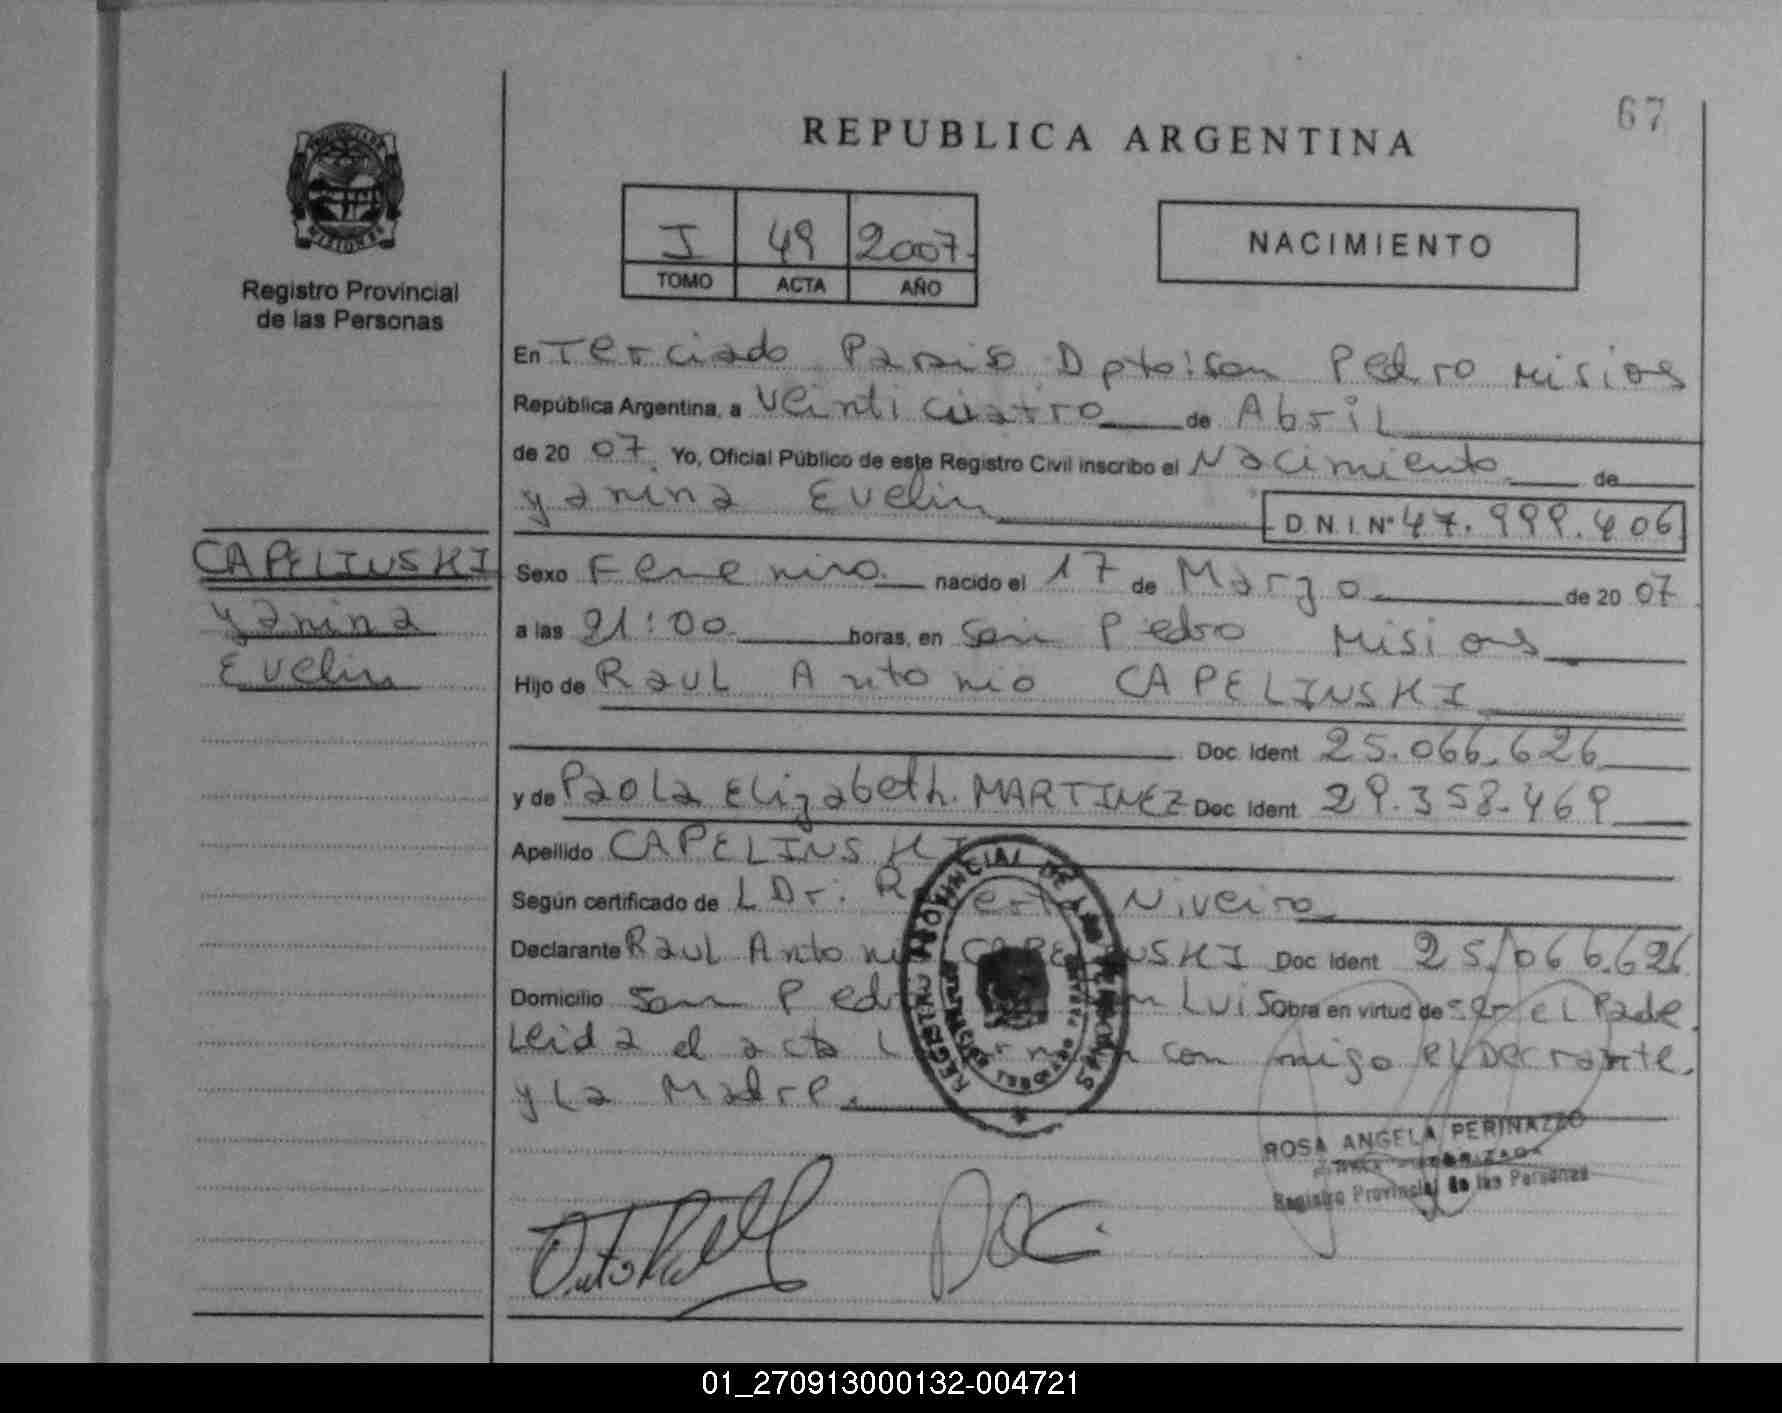 67
REPUBLICA ARGENTINA
PROVINCIA DE MISIONES
Registro Provincial
de las Personas
I 49 2007.
TOMO ACTA AÑO
NACIMIENTO
En Terciado Paraiso Dpto: San Pedro Misiones
República Argentina, a Veinticuatro de Abril
de 20 07. Yo, Oficial Público de este Registro Civil inscribo el Nacimiento de
Yanina Evelin
D.N.I. Nº 47.999.406
CAPELINSKI
Yanina
Evelin
Sexo Femenino nacido el 17 de Marzo de 20 07
a las 21:00 horas, en San Pedro Misiones
Hijo de Raul Antonio CAPELINSKI
Doc. Ident 25.066.626
y de Paola Elizabeth. MARTINEZ Doc. Ident. 29.358.469
Apellido CAPELINSKI
Según certificado de L Dr. Niveiro
Declarante Raul Antonio CAPELINSKI Doc. Ident 25.066.626
Domicilio San Pedro Luis Obra en virtud de ser el Padre.
Leida el acta con migo el
y La Madre.
REGISTRO PROVINCIAL DE LAS PERSONAS
ROSA ANGELA PERINAZZO
Registro Provincial de las Personas
01_270913000132-004721